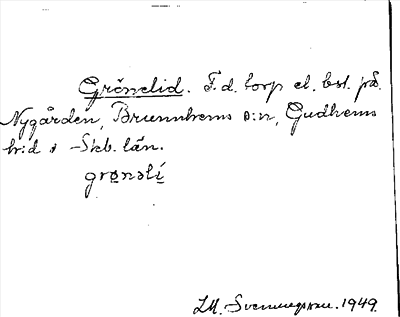 Grönelid. F.d. torp el. bst. på
Nygården, Brunnhems s:n, Gudhems
hrd i Skb. län.
grønslí
Svenungsson. 1949.